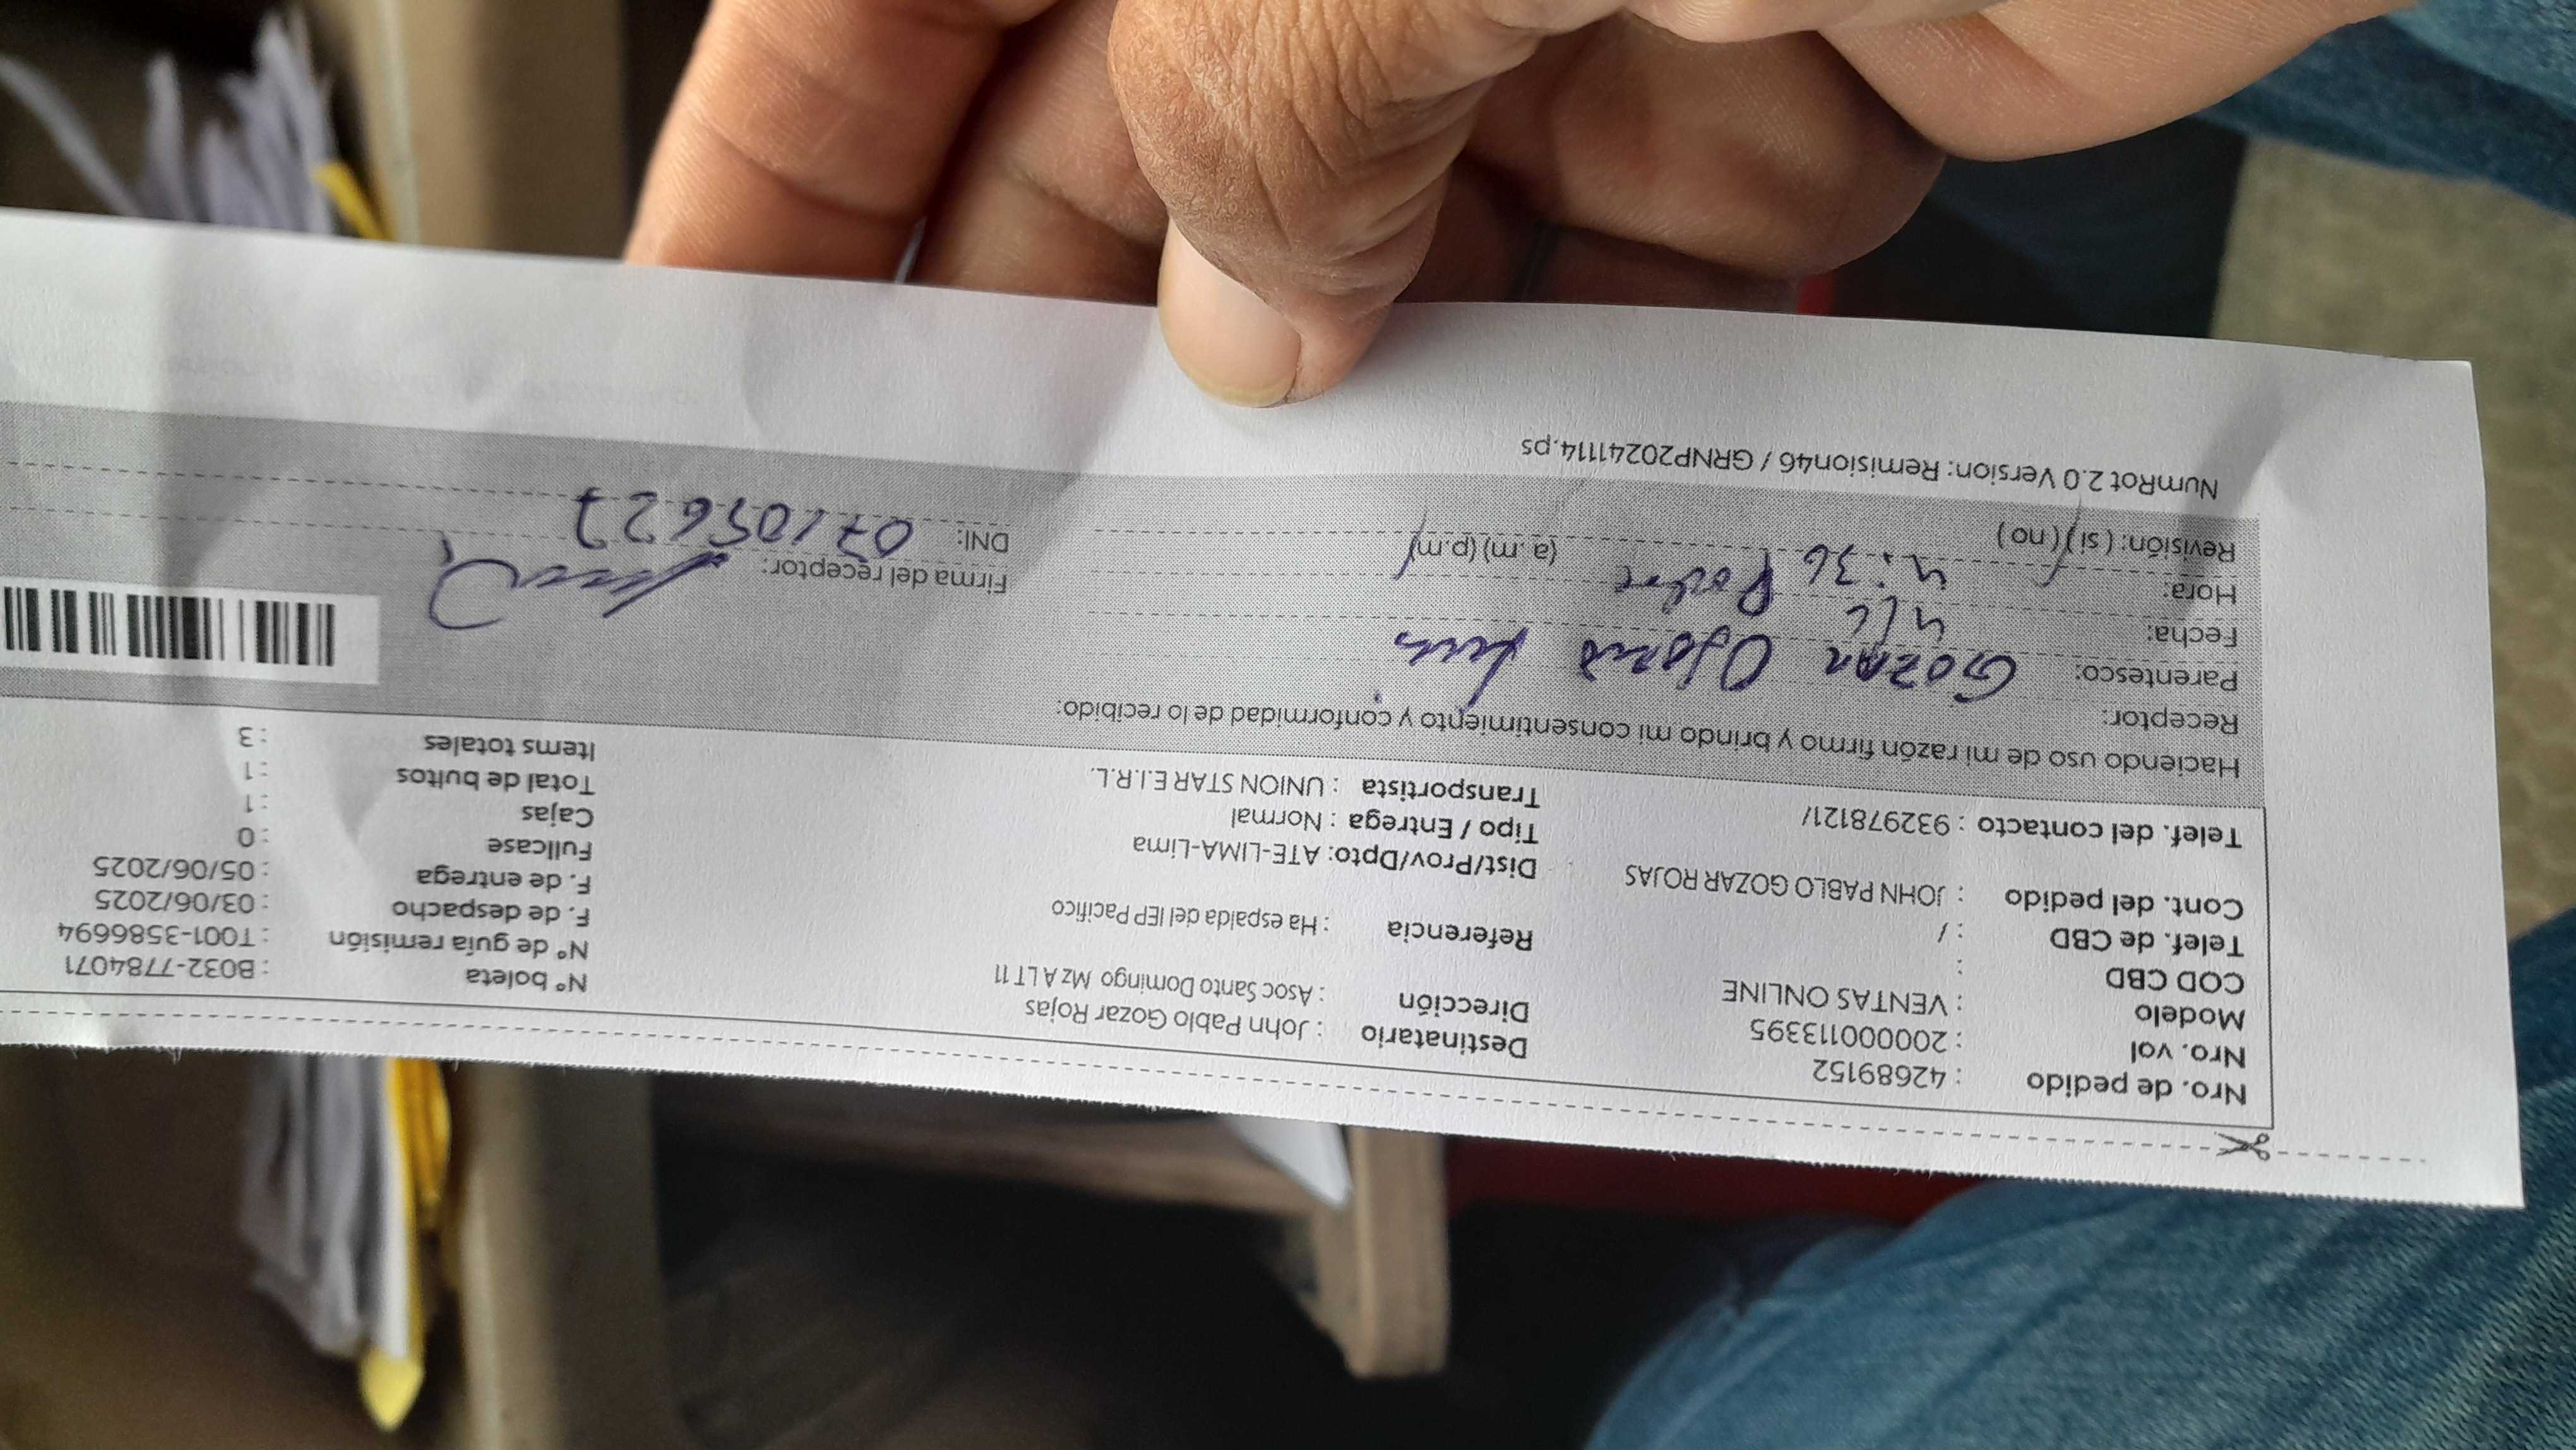 Nro. de pedido : 42689152
Nro. vol : 20000113395
Modelo : VENTAS ONLINE
COD CBD :
Telef. de CBD : /
Cont. del pedido : JOHN PABLO GOZAR ROJAS
Telef. del contacto : 932978121/
Destinatario : John Pablo Gozar Rojas
Dirección : Asoc Santo Domingo Mz A LT 11
Referencia : Ha espalda del IEP Pacifico
Dist/Prov/Dpto: ATE-LIMA-Lima
Tipo / Entrega : Normal
Transportista : UNION STAR E.I.R.L.
N° boleta : B032-7784071
N° de guía remisión : T001-3586694
F. de despacho : 03/06/2025
F. de entrega : 05/06/2025
Fullcase : 0
Cajas : 1
Total de bultos : 1
Items totales : 3
Haciendo uso de mi razón firmo y brindo mi consentimiento y conformidad de lo recibido:
Receptor: Gozar
Parentesco:
Fecha: 4/6
Hora: 4:36 (a.m) (p.m)
Revisión: ( si ) ( no )
Firma del receptor:
DNI: 07105627
NumRot 2.0 Version: Remision46 / GRNP20241114.ps